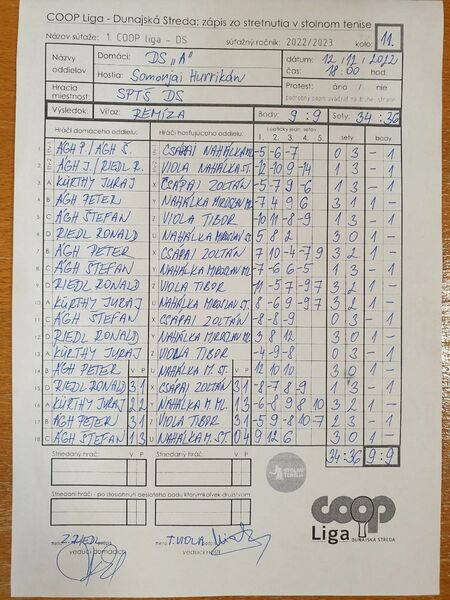 COOP Liga - Dunajská Streda: zápis zo stretnutia v stolnom tenise
Názov súťaže: 1. COOP liga - DS súťažný ročník: 2022/2023 kolo: 11.
Názvy oddielov Domáci: DS „A" dátum: 12./12./2022
Hostia: Somonjai Hurrikán čas: 18:00 hod.
Hracia miestnosť: SPTŠ DS Protest: áno / nie
Výsledok: Víťaz: REMÍZA Body: 9 : 9 Sety: 34 : 36
Hráči domáceho oddielu: Hráči hosťujúceho oddielu: 1. 2. 3. 4. 5. sety body
1. ÁGH P./ÁGH Š. CSÁPAI NAHÁLKA ML. -5 -6 -7 0 3 - 1
2. ÁGH J./RIEDL R. VIOLA NAHÁLKA ST. -12 -10 9 -14 1 3 - 1
3. A KÜRTHY JURAJ X CSÁPAI ZOLTÁN -5 -7 9 -6 1 3 - 1
4. B ÁGH PETER Y NAHÁLKA MIROSLAV ML. -7 4 9 6 3 1 1 -
5. C ÁGH ŠTEFAN Z VIOLA TIBOR -10 11 -8 -9 1 3 - 1
6. D RIEDL RONALD U NAHÁLKA MIROSLAV ST. 5 8 2 3 0 1 -
7. B ÁGH PETER X CSÁPAI ZOLTÁN 7 10 -4 -7 9 3 2 1 -
8. C ÁGH ŠTEFAN Y NAHÁLKA MIROSLAV ML. -7 -6 6 -5 1 3 - 1
9. D RIEDL RONALD Z VIOLA TIBOR 11 -5 7 -9 7 3 2 1 -
10. A KÜRTHY JURAJ U NAHÁLKA MIROSLAV ST. 8 -6 9 -9 7 3 2 1 -
11. C ÁGH ŠTEFAN X CSÁPAI ZOLTÁN -8 -8 -9 0 3 - 1
12. D RIEDL RONALD Y NAHÁLKA MIROSLAV ML. 3 8 12 3 0 1 -
13. A KÜRTHY JURAJ Z VIOLA TIBOR -4 -9 -8 0 3 - 1
14. B ÁGH PETER U NAHÁLKA M. ST. 12 10 10 3 0 1 -
15. D RIEDL RONALD 3 1 X CSÁPAI ZOLTÁN 3 1 -8 -7 8 -9 1 3 - 1
16. A KÜRTHY JURAJ 2 2 Y NAHÁLKA M. ML. 1 3 -6 -8 9 8 10 3 2 1 -
17. B ÁGH PETER 3 1 Z VIOLA TIBOR 3 1 -5 9 -8 10 -7 2 3 - 1
18. C ÁGH ŠTEFAN 1 3 U NAHÁLKA M. ST. 0 4 9 12 6 3 0 1 -
Striedaný hráč: V P Striedaný hráč: V P 34:36 9:9
Striedaní hráči - po dosiahnutí desiateho bodu ktorýmkoľvek družstvom
STOLNÝ TENIS
coop
Liga DUNAJSKÁ STREDA
Z. RIEDL T. VIOLA
vedúci domácich vedúci hostí